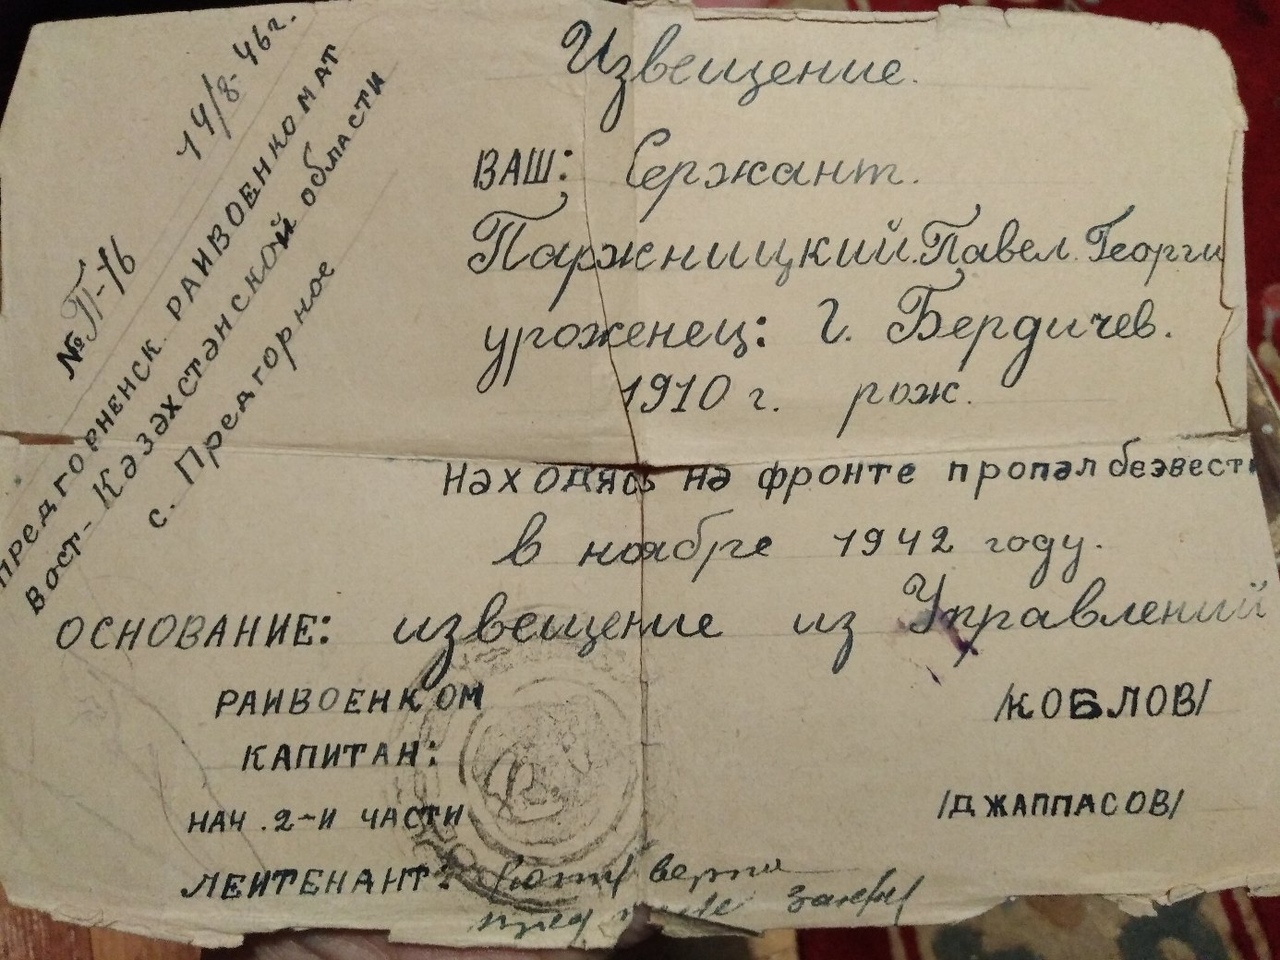 14/8-46г.
№ П-16
ПРЕДГОРНЕНСК. РАИВОЕНКОМАТ
Вост-Казахстанской области
с. Предгорное
Извещение.
ВАШ: Сержант.
Паржницкий Павел Георги
уроженец: г. Бердичев.
1910 г. рож.
Находясь на фронте пропал безвести
в ноябре 1942 году.
ОСНОВАНИЕ: извещение из Управлений
РАИВОЕНКОМ
КАПИТАН: /КОБЛОВ/
НАЧ. 2-И ЧАСТИ
ЛЕИТЕНАНТ: /ДЖАППАСОВ/
верна